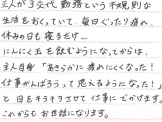 主人が3交代勤務という不規則な
生活をおくっていて、毎日ぐったり疲れ、
休みの日も寝るだけ…
にんにく玉を飲むようになってからは、
主人自身「あきらかに疲れにくくなった!
仕事がんばろうって思えるようになった!」
と目をキラキラさせて仕事にでかけます。
これからもお世話になります。